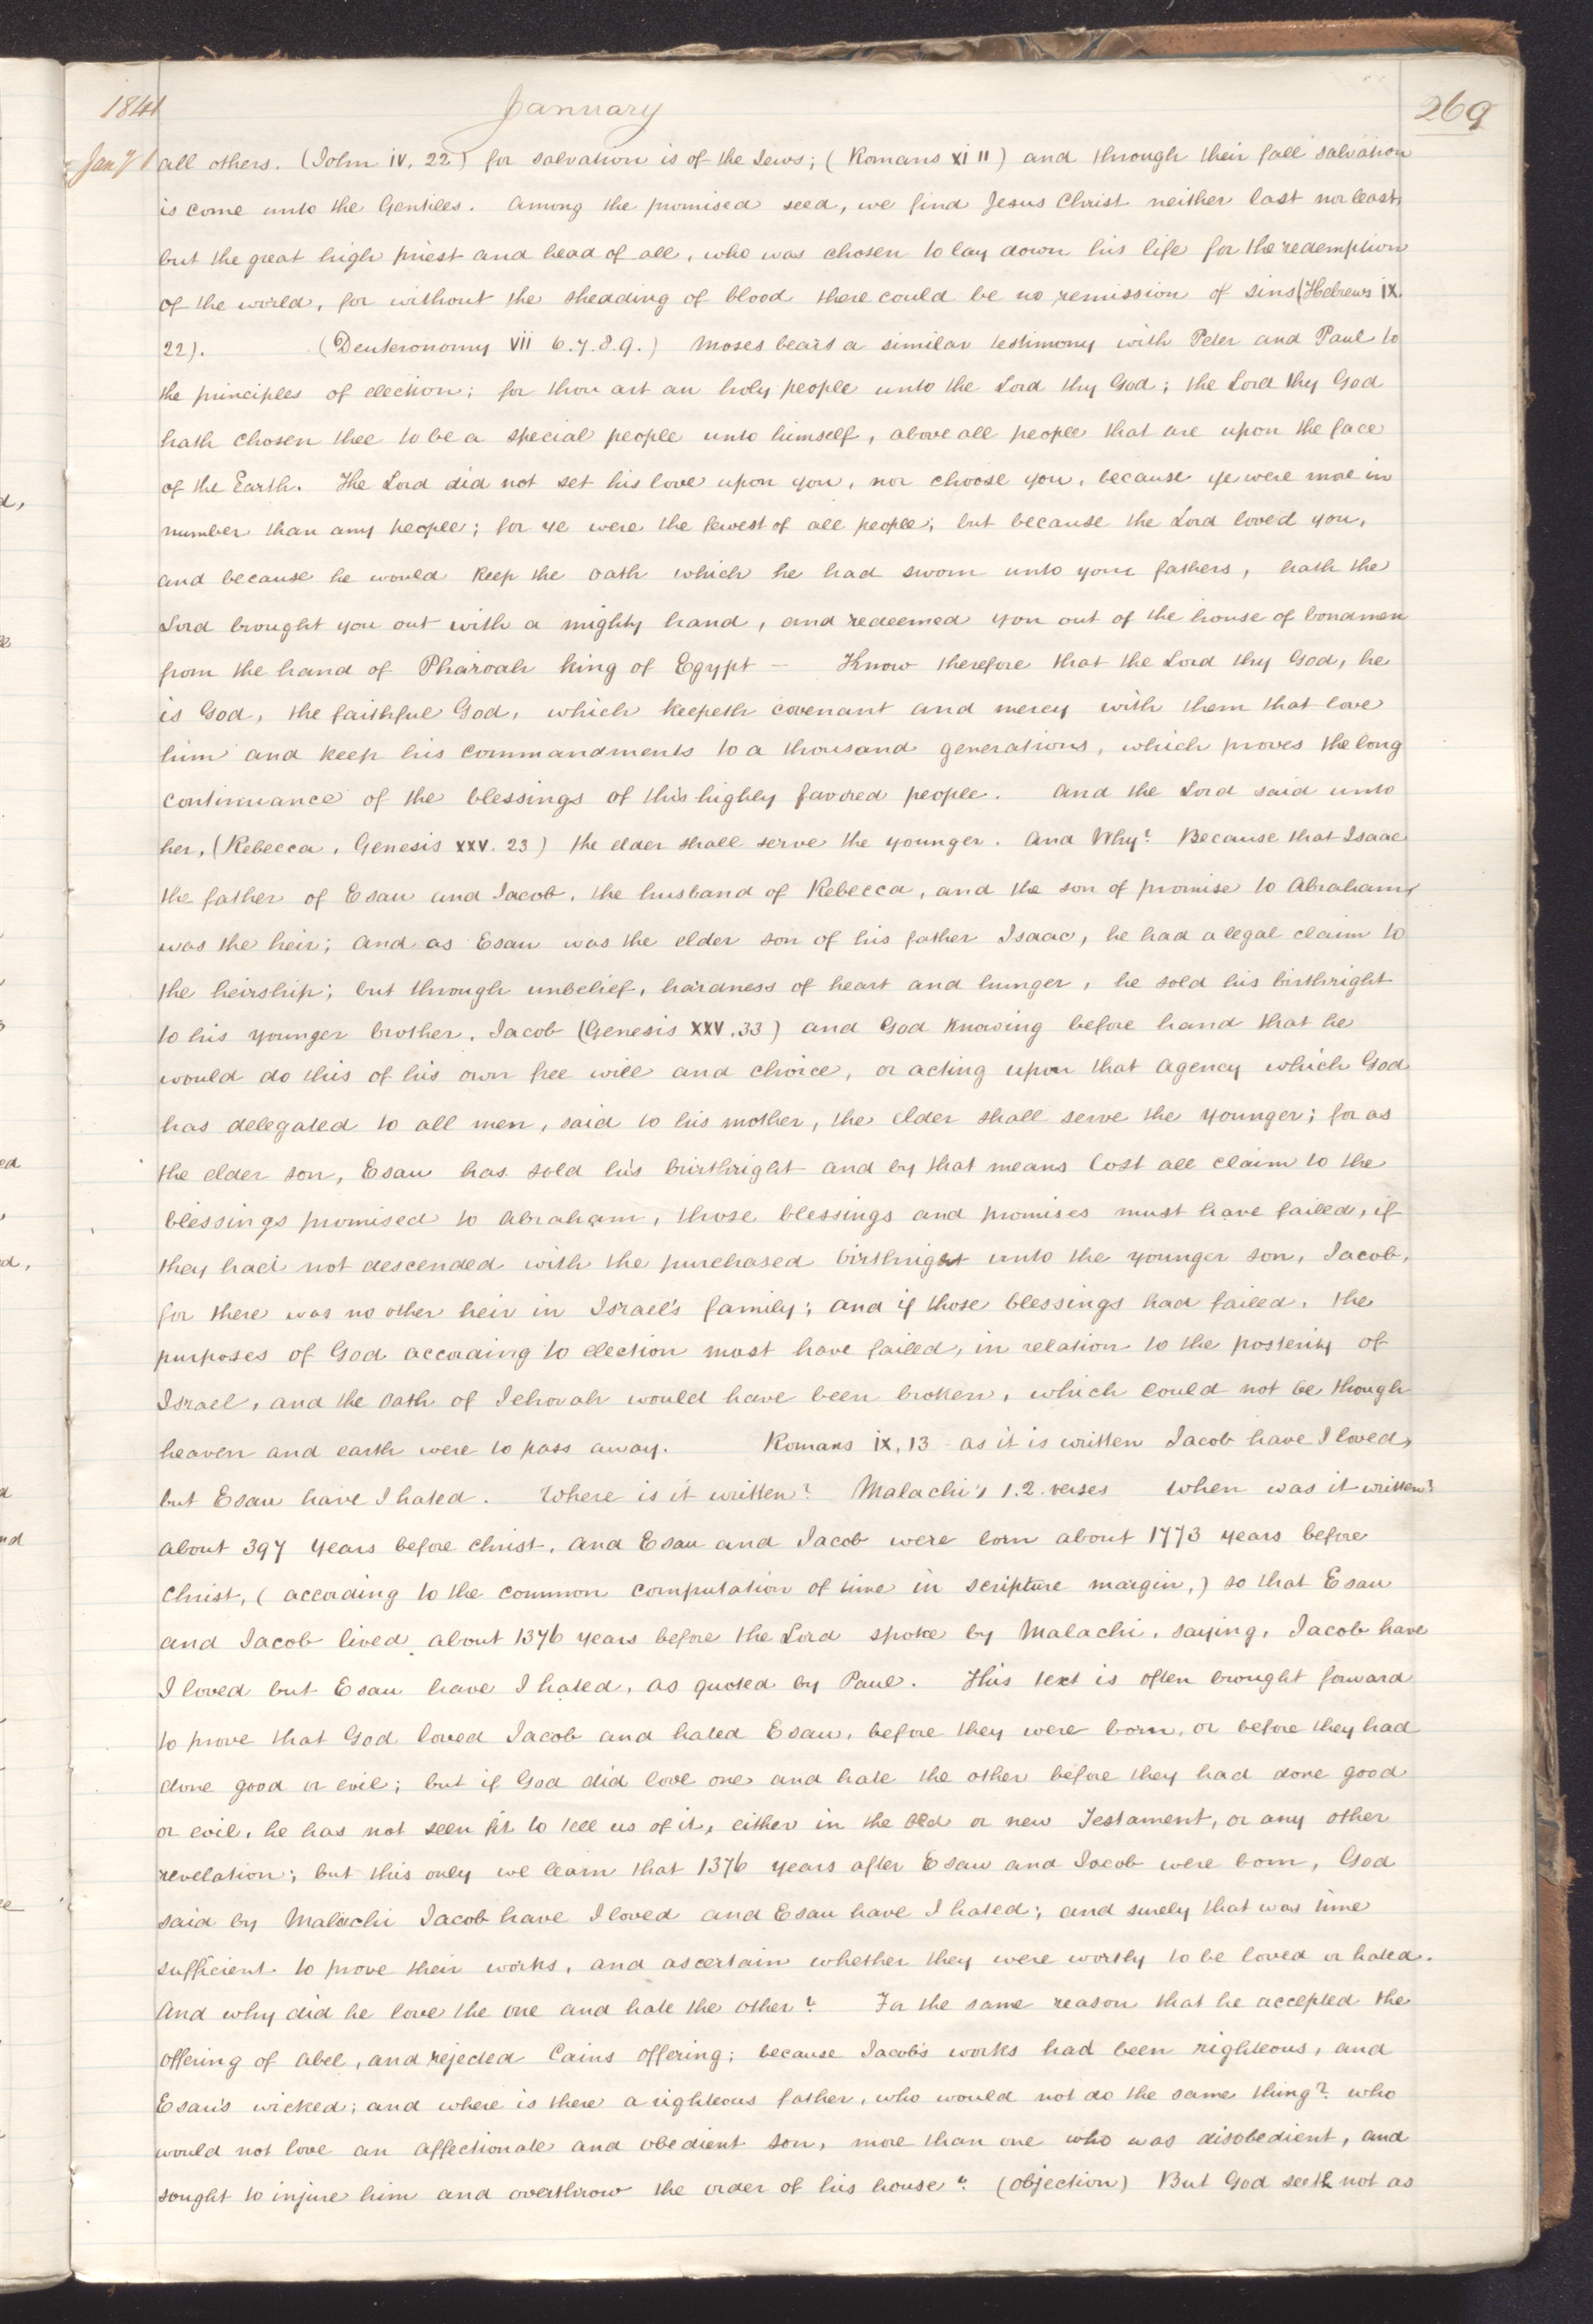 1841 January 269
Jany 1 all others. (John iv, 22) for salvation is of the Jews; (Romans xi 11) and through their fall salvation
is come unto the Gentiles. Among the promised seed, we find Jesus Christ neither last nor least,
but the great high priest and head of all, who was chosen to lay down his life for the redemption
of the world, for without the shedding of blood there could be no remission of sins (Hebrews ix.
22). (Deuteronomy vii 6.7.8.9.) Moses bears a similar testimony with Peter and Paul to
the principles of election; for thou art an holy people unto the Lord thy God; the Lord thy God
hath chosen thee to be a special people unto himself, above all people that are upon the face
of the Earth. The Lord did not set his love upon you, nor choose you, because ye were more in
number than any people; for ye were the fewest of all people; but because the Lord loved you,
and because he would keep the oath which he had sworn unto your fathers, hath the
Lord brought you out with a mighty hand, and redeemed you out of the house of bondmen
from the hand of Pharoah king of Egypt — Know therefore that the Lord thy God, he
is God, the faithful God, which keepeth covenant and mercy with them that love
him and keep his commandments to a thousand generations, which proves the long
continuance of the blessings of this highly favored people. And the Lord said unto
her, (Rebecca, Genesis xxv. 23) the elder shall serve the younger. And Why? Because that Isaac
the father of Esau and Jacob, the husband of Rebecca, and the son of promise to Abraham,
was the heir; and as Esau was the elder son of his father Isaac, he had a legal claim to
the heirship; but through unbelief, hardness of heart and hunger, he sold his birthright
to his younger brother, Jacob (Genesis XXV.33) and God knowing before hand that he
would do this of his own free will and choice, or acting upon that agency which God
has delegated to all men, said to his mother, the elder shall serve the younger; for as
the elder son, Esau has sold his birthright and by that means lost all claim to the
blessings promised to Abraham, those blessings and promises must have failed, if
they had not descended with the purchased birthright unto the younger son, Jacob,
for there was no other heir in Israel's family; and if those blessings had failed, the
purposes of God according to election must have failed, in relation to the posterity of
Israel, and the oath of Jehovah would have been broken, which could not be though
heaven and earth were to pass away. Romans ix, 13 as it is written Jacob have I loved,
but Esau have I hated. Where is it written? Malachi 1 1.2. verses When was it written?
about 397 years before Christ, and Esau and Jacob were born about 1773 years before
Christ, (according to the common computation of time in scripture margin,) so that Esau
and Jacob lived about 1376 years before the Lord spoke by Malachi, saying, Jacob have
I loved but Esau have I hated, as quoted by Paul. This text is often brought forward
to prove that God loved Jacob and hated Esau, before they were born, or before they had
done good or evil; but if God did love one and hate the other before they had done good
or evil, he has not seen fit to tell us of it, either in the old or new Testament, or any other
revelation; but this only we learn that 1376 years after Esau and Jacob were born, God
said by Malachi Jacob have I loved and Esau have I hated; and surely that was time
sufficient to prove their works, and ascertain whether they were worthy to be loved or hated.
And why did he love the one and hate the other? For the same reason that he accepted the
offering of Abel, and rejected Cains offering; because Jacob's works had been righteous, and
Esau's wicked; and where is there a righteous father, who would not do the same thing? who
would not love an affectionate and obedient son, more than one who was disobedient, and
sought to injure him and overthrow the order of his house? (objection) But God seeth not as